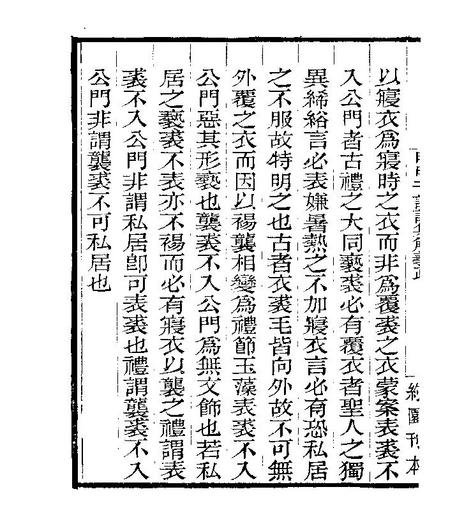 以寢衣爲寢時之衣而非爲覆裘之衣蒙案表裘不
入公門者古禮之大同褻裘必有覆衣者聖人之獨
異絺綌言必表嫌暑熱之不加寢衣言必有恐私居
之不服故特明之也古者衣裘毛皆向外故不可無
外覆之衣而因以裼襲相變爲禮節玉藻表裘不入
公門惡其形褻也襲裘不入公門爲無文飾也若私
居之褻裘不表亦不裼而必有寢衣以襲之禮謂表
裘不入公門非謂私居卽可表裘也禮謂襲裘不入
公門非謂襲裘不可私居也
刊本